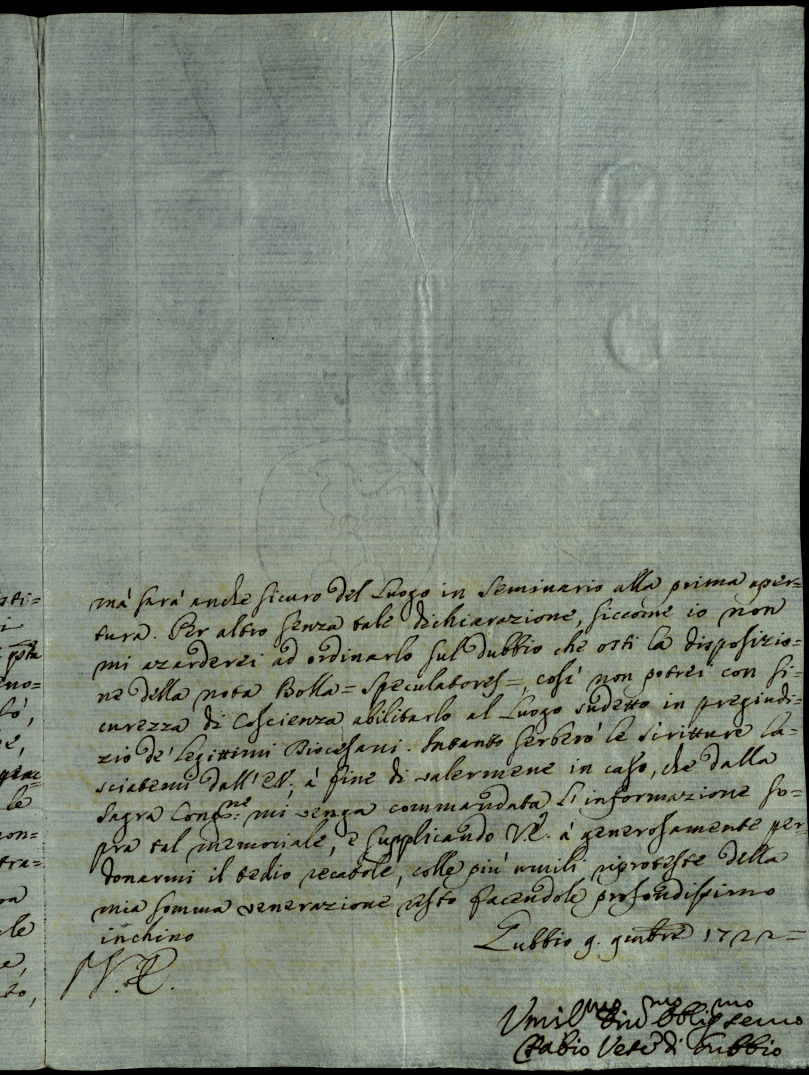 sti=
i
pñta
no=
tò,
e,
le
non=
tra=
ra
le
e,
to,
mà sarà anche sicuro del Luogo in Seminario alla prima aper=
tura. Per altro senza tale dichiarazione, siccome io non
mi azarderei ad ordinarlo sul dubbio che osti la disposizio=
ne della nota Bolla = Speculatores =, così non potrei con si=
curezza di Coscienza abilitarlo al Luogo sudetto in pregiudi=
zio de' legittimi Diocesani. Intanto serberò le scritture la=
sciatemi dall' à fine di valermene in caso, che dalla
Sagra Congne. mi venga commandata L'informazione so=
pra tal memoriale, e supplicando V.E. à generosamente per=
donarmi il tedio recatole, colle più umili riproteste della
mia somma venerazione resto facendole profondissimo
inchino
Gubbio 9. 1722=
V.E.
Umilmo Divmo Obligmo Servo
Fabio Vesco di Gubbio